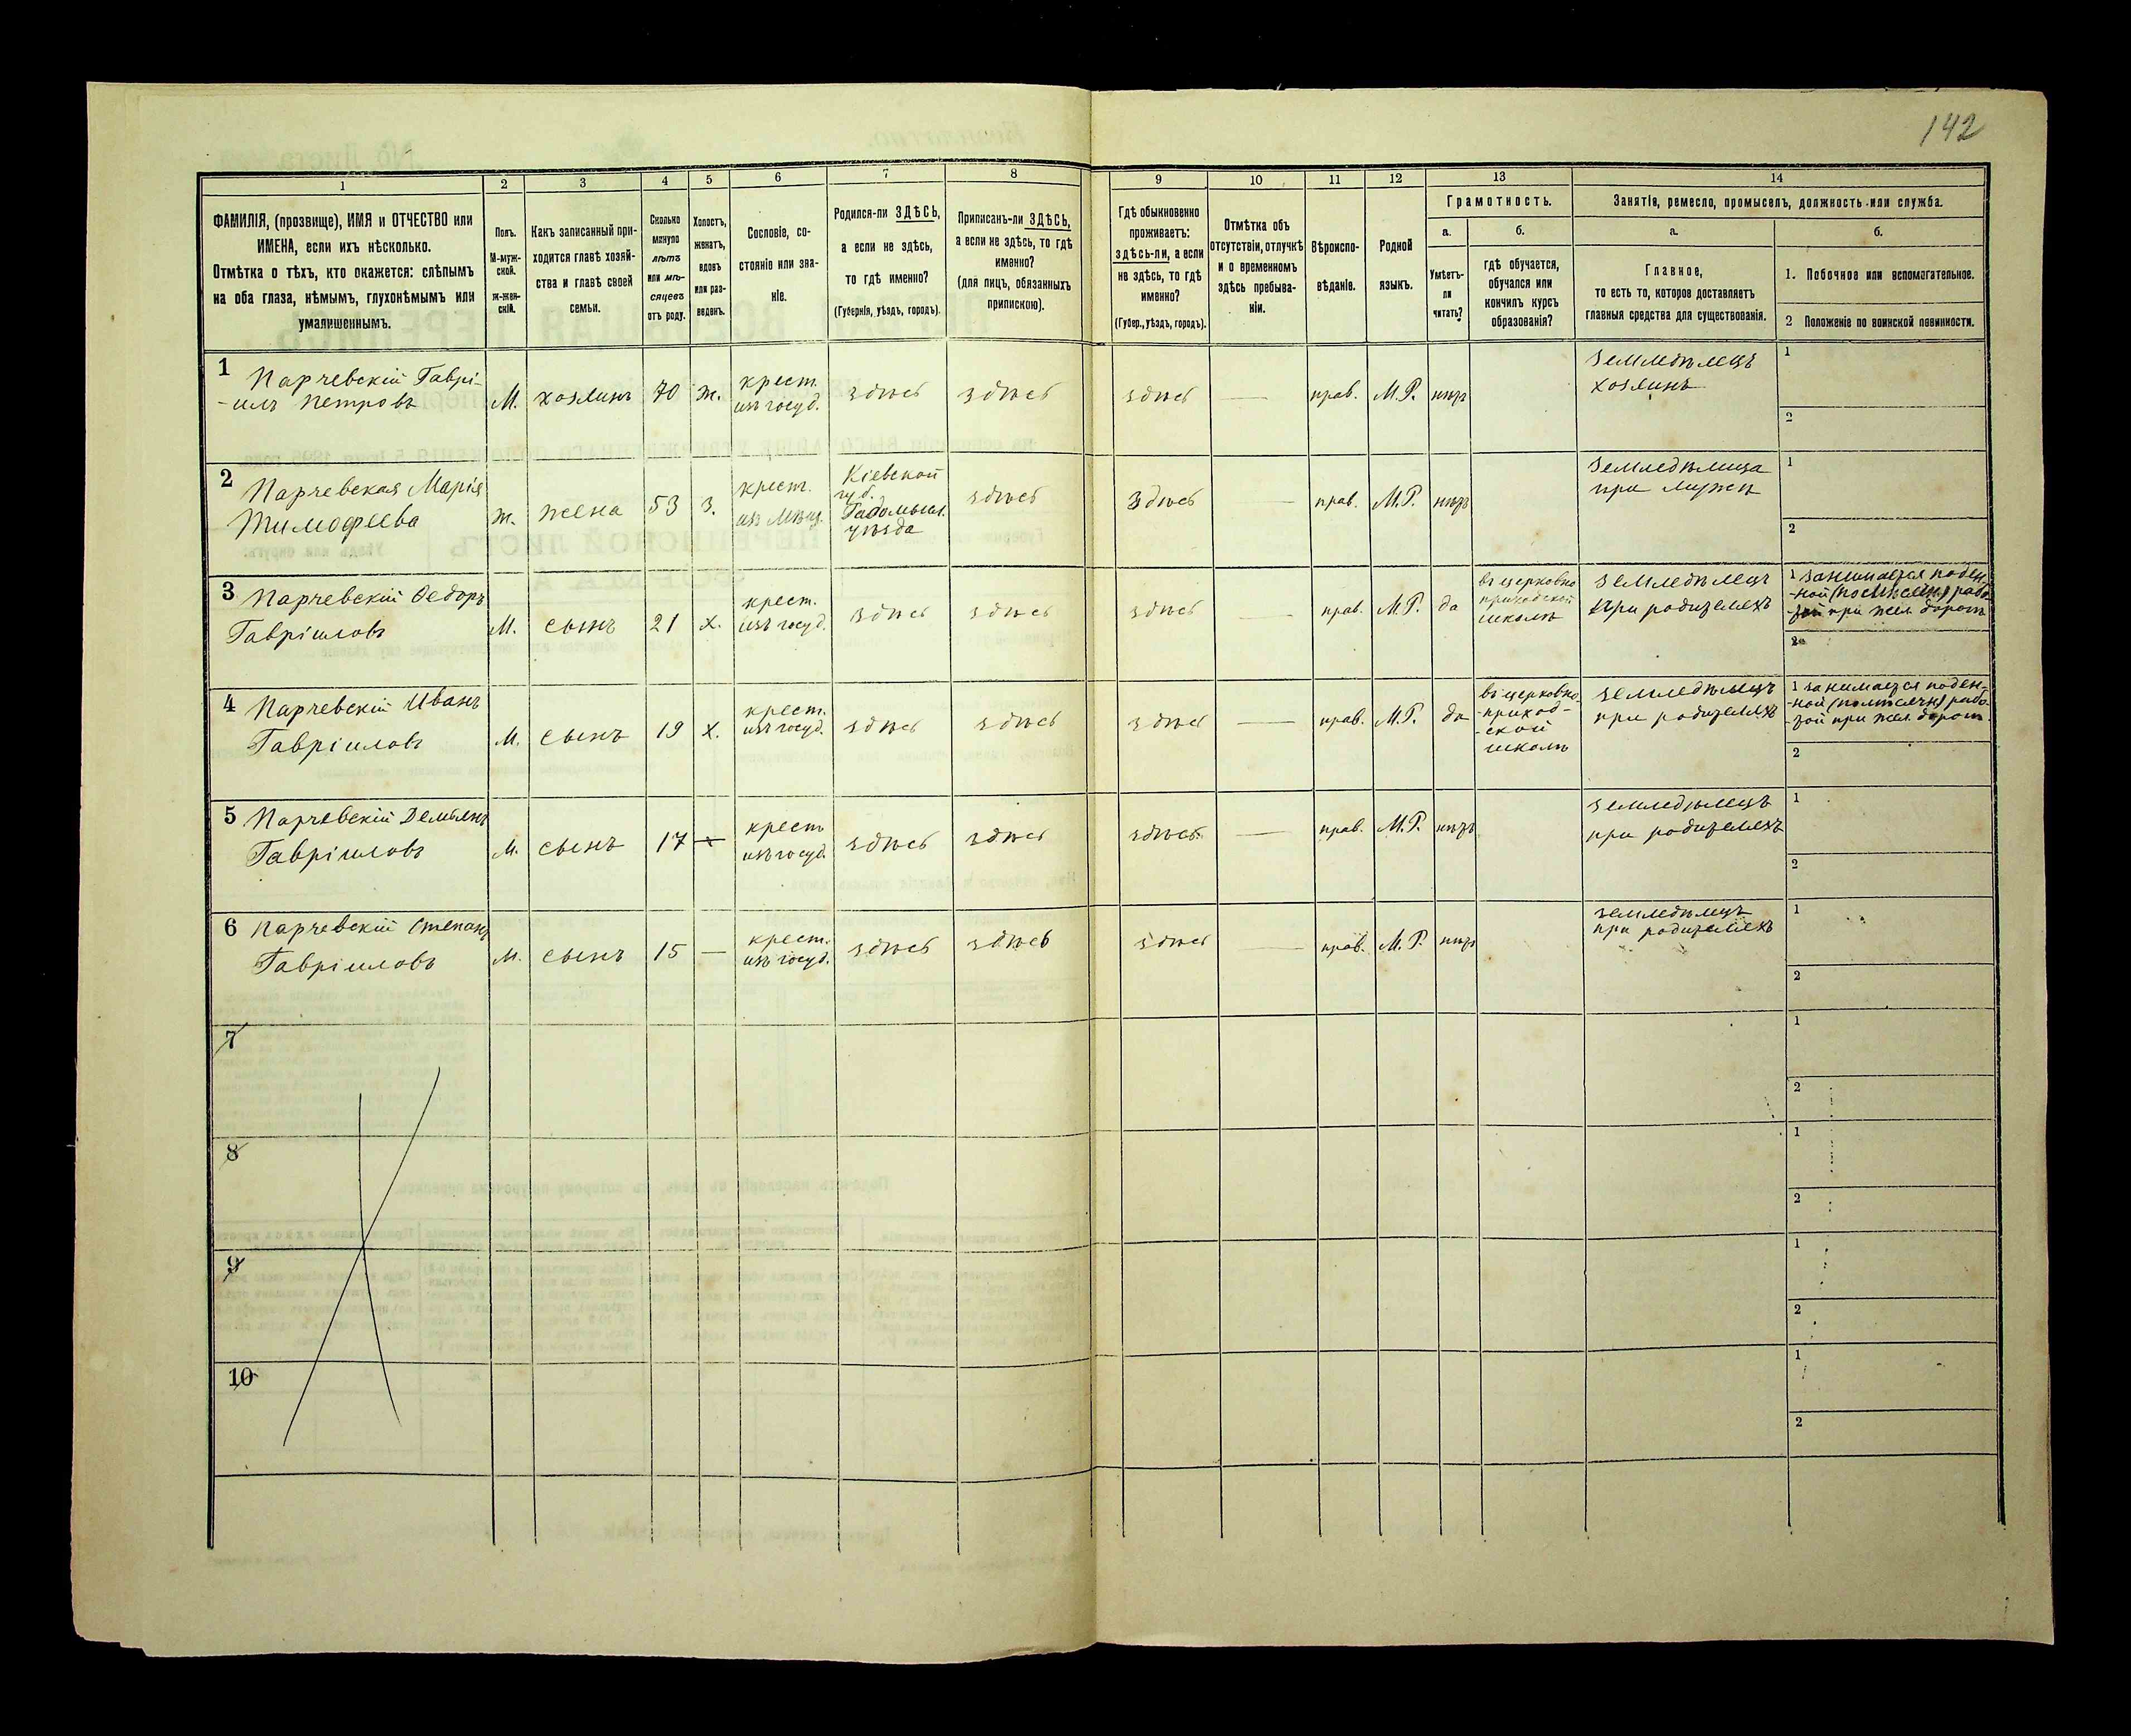 142
1 2 3 4 5 6 7 8 9 10 11 12 13 14
ФАМИЛІЯ, (прозвище), ИМЯ и ОТЧЕСТВО или
ИМЕНА, если ихъ нѣсколько.
Отмѣтка о тѣхъ, кто окажется: слѣпымъ
на оба глаза, нѣмымъ, глухонѣмымъ или
умалишеннымъ.
Полъ.
М-муж-
ской.
ж-жен-
скій.
Какъ записанный при-
ходится главѣ хозяй-
ства и главѣ своей
семьи.
Сколько
минуло
лѣтъ
или мѣ-
сяцевъ
отъ роду.
Холостъ,
женатъ,
вдовъ
или раз-
веденъ.
Сословіе, со-
стояніе или зва-
ніе.
Родился-ли ЗДѢСЬ,
а если не здѣсь,
то гдѣ именно?
(Губернія, уѣздъ, городъ).
Приписанъ-ли ЗДѢСЬ,
а если не здѣсь, то гдѣ
именно?
(для лицъ, обязанныхъ
припискою).
Гдѣ обыкновенно
проживаетъ:
здѣсь-ли, а если
не здѣсь, то гдѣ
именно?
(Губер., уѣздъ, городъ).
Отмѣтка объ
отсутствіи, отлучкѣ
и о временномъ
здѣсь пребыва-
ніи.
Вѣроиспо-
вѣданіе.
Родной
языкъ.
Грамотность.
а.
Умѣетъ-
ли
читать?
б.
гдѣ обучается,
обучался или
кончилъ курсъ
образованія?
Занятіе, ремесло, промыселъ, должность или служба.
а.
Главное,
то есть то, которое доставляетъ
главныя средства для существованія.
б.
1. Побочное или вспомогательное.
2 Положеніе по воинской повинности.
1 Парчевскій Гаврі-
-илъ Петровъ
М.
хозяинъ
70
ж.
крест.
изъ госуд.
здѣсь
здѣсь
здѣсь
—
прав.
М.Р.
нѣтъ
земледѣлецъ
хозяинъ
1
2
2 Парчевская Марія
Тимофеева
ж.
жена
53
з.
крест.
изъ мѣщ.
Кіевской
губ.
Радомысл.
уѣзда
здѣсь
здѣсь
—
прав.
М.Р.
нѣтъ
земледѣлица
при мужѣ
1
2
3 Парчевскій Ѳедоръ
Гавріиловъ
М.
сынъ
21
х.
крест.
изъ госуд.
здѣсь
здѣсь
здѣсь
—
прав.
М.Р.
да
въ церковно
приходской
школѣ
земледѣлецъ
при родителяхъ
1 занимается поден-
-ной (помѣсячн) рабо-
-той при жел. дорогѣ
2
4 Парчевскій Иванъ
Гавріиловъ
М.
сынъ
19
х.
крест.
изъ госуд.
здѣсь
здѣсь
здѣсь
—
прав.
М.Р.
да
въ церковно-
-приход-
-ской
школѣ
земледѣлецъ
при родителяхъ
1 занимается поден-
-ной (помѣсячн) рабо-
-той при жел. дорогѣ.
2
5 Парчевскій Демьянъ
Гавріиловъ
М.
сынъ
17
—
крест.
изъ госуд.
здѣсь
здѣсь
здѣсь
—
прав.
М.Р.
нѣтъ
земледѣлецъ
при родителяхъ
1
2
6 Парчевскій Степанъ
Гавріиловъ
М.
сынъ
15
—
крест.
изъ госуд.
здѣсь
здѣсь
здѣсь
—
прав.
М.Р.
нѣтъ
земледѣлецъ
при родителяхъ
1
2
7
1
2
8
1
2
9
1
2
10
1
2